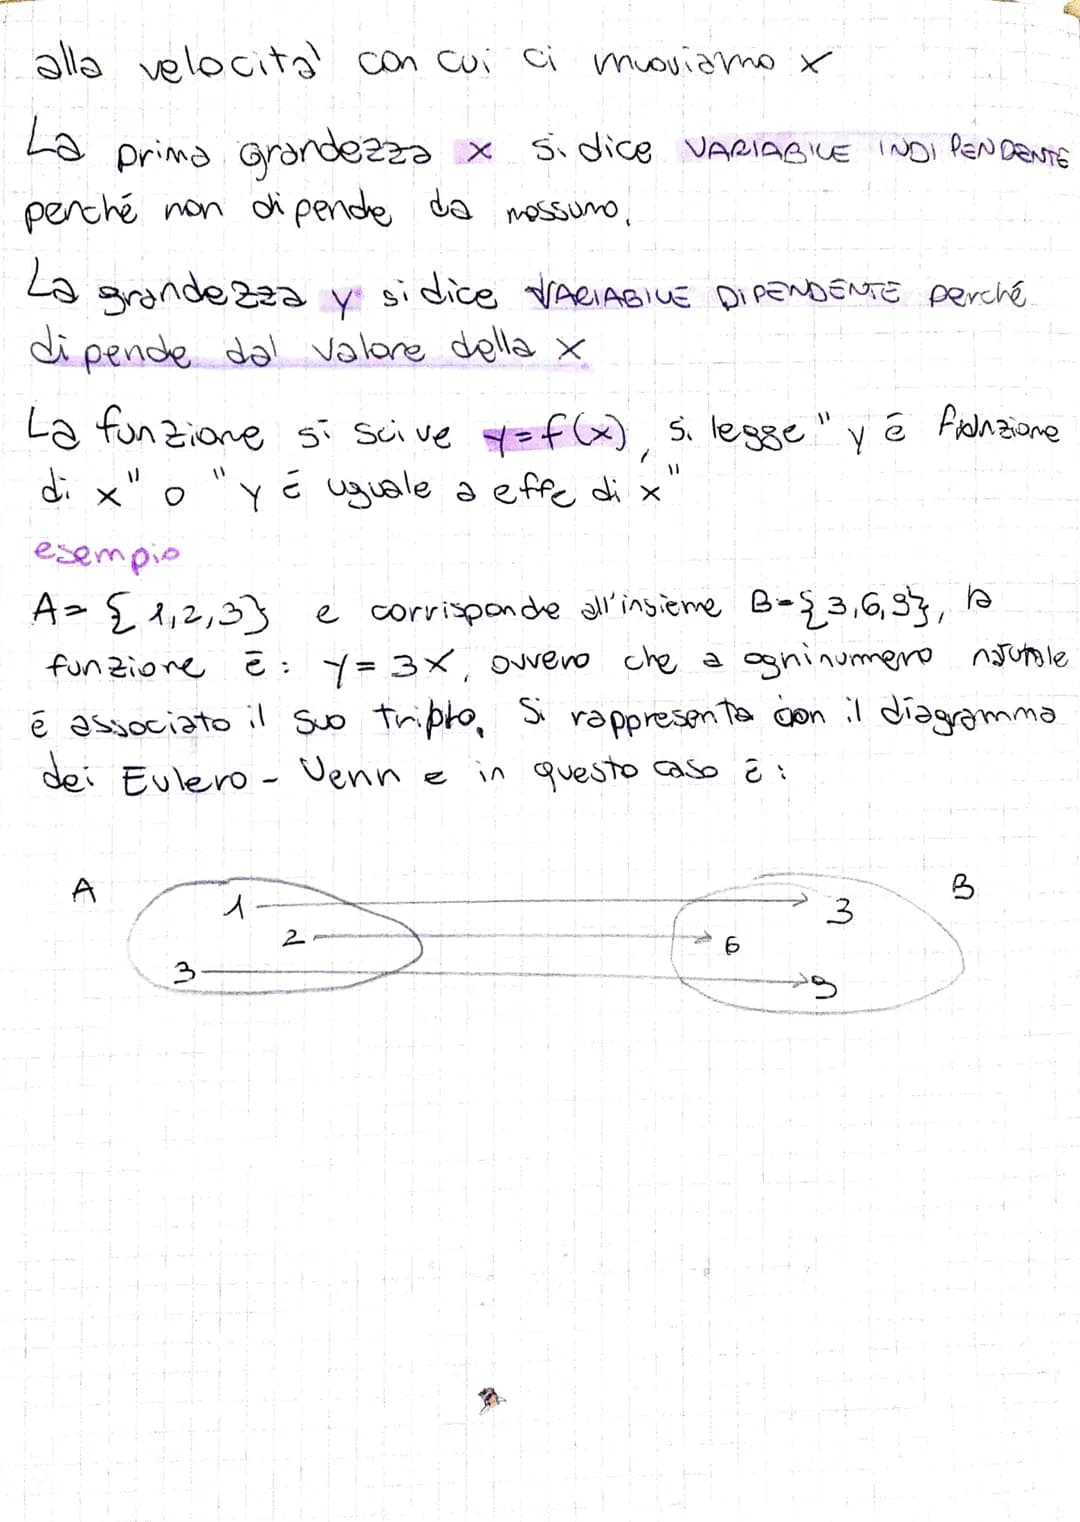 alla velocità con cui ci muoviamo x
La prima grandezza x si dice VARIABILE INDIPENDENTE
perché non dipende da nessuno.
La grandezza y si dice VARIABILE DIPENDENTE perché
dipende dal valore della x
La funzione si scive y=f(x), si legge "y è funzione
di x" o "y è uguale a effe di x"
esempio
A={1,2,3} e corrisponde all'insieme B={3,6,9}, la
funzione è: y=3x, ovvero che a ogni numero naturale
è associato il suo triplo. Si rappresenta con il diagramma
dei Eulero-Venn e in questo caso è:
A 1 3 B
2 6
3 9